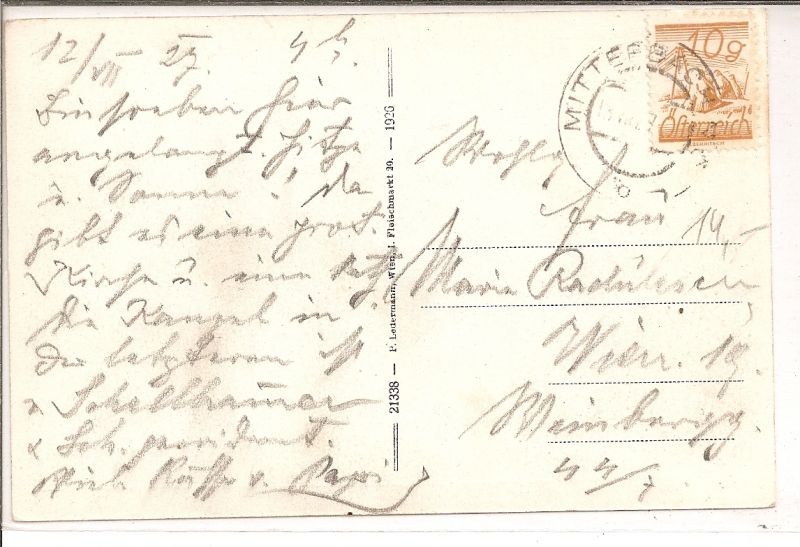 12/VII 27. 4 h.
Bin soeben hier
angelangt. Hitze
u. Sonne. Da
gibt es eine prot.
Kirche u. eine
die Kanzel in
der letzteren ist
v. Schellhammer
Viele Küsse v. Papi
21338 — P. Ledermann, Wien, I. Fleischmarkt 20. — 1926
MITTERBACH
10g
Österreich
Frau
14,-
Marie Radulescu
Wien. 19.
Weinbergg.
44/7